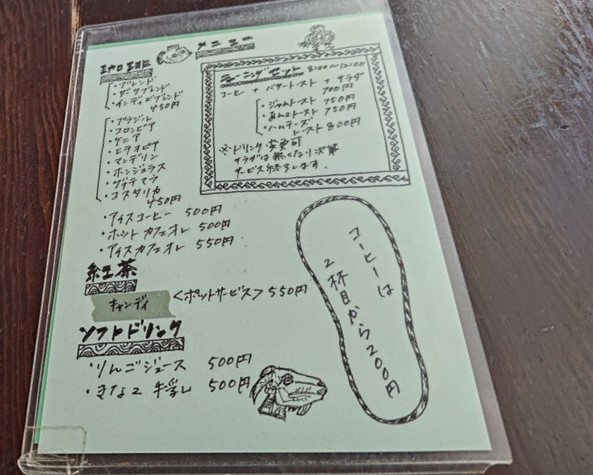 メニュー
珈琲
・ブレンド
・ダークブレンド
・インディゴブレンド
450円
・ブラジル
・コロンビア
・ケニア
・エチオピア
・マンデリン
・ホンジュラス
・グァテマラ
・コスタリカ
450円
・アイスコーヒー 500円
・ホットカフェオレ 500円
・アイスカフェオレ 550円
紅茶
キャンディ <ポットサービス> 550円
ソフトドリンク
・りんごジュース 500円
・きなこ牛乳 500円
モーニングセット 8:00〜12:00
コーヒー + バタートースト + サラダ
700円
・ジャムトースト 750円
・あんこトースト 750円
・ハムチーズ
トースト 800円
※・ドリンク変更可
サラダは無くなり次第
サービス終了します。
コーヒーは
2杯目から200円